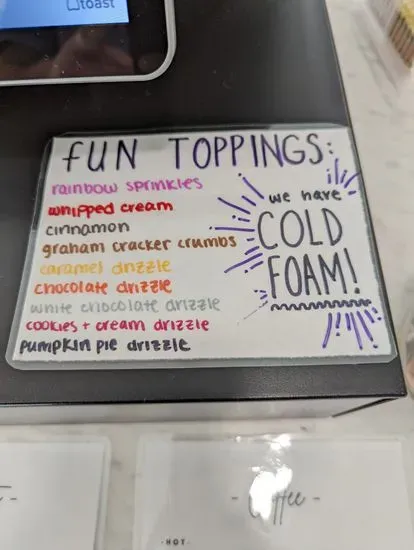 toast
FUN TOPPINGS:
rainbow sprinkles
whipped cream
cinnamon
graham cracker crumbs
caramel drizzle
chocolate drizzle
white chocolate drizzle
cookies + cream drizzle
pumpkin pie drizzle
we have
COLD
FOAM!
- Coffee -
- HOT -